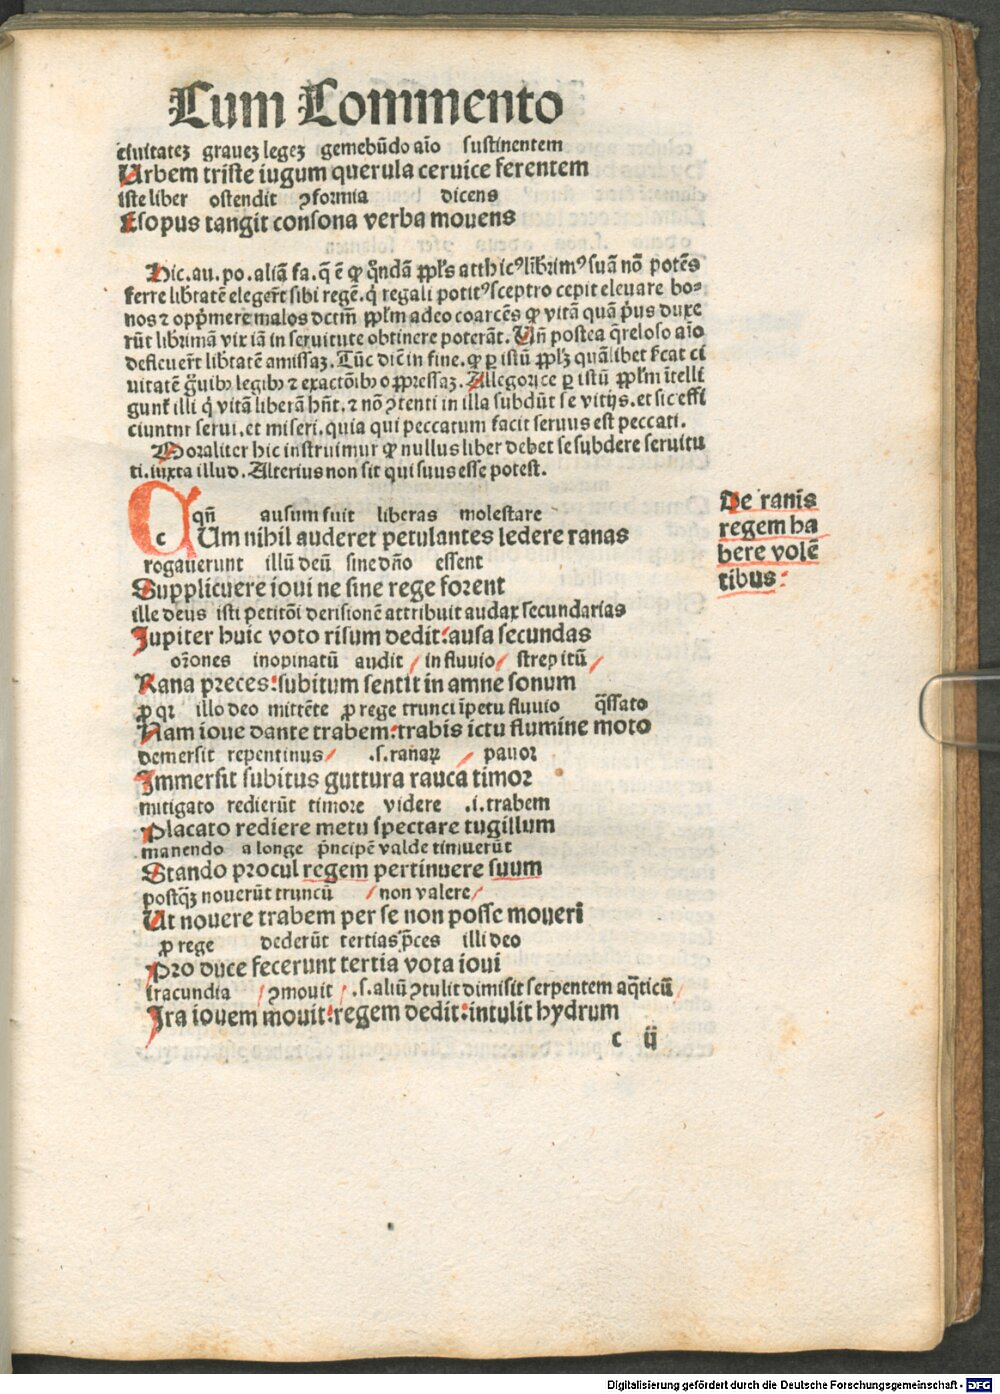 Cum Commento
ciuitatez grauez legez gemebūdo aīo sustinentem
Urbem triste iugum querula ceruice ferentem
iste liber ostendit ꝯformia dicens
Esopus tangit consona verba mouens
Hic.au.po.aliā fa.q̄ ē ꝙ q̄ndā ꝓpl's atthicꝰ librimꝰ suā nō potēs
ferre lib̄tatē elegert̄ sibi regē.q̇ regali potitꝰ sceptro cepit eleuare bo⸗
nos ⁊ opp̄mere malos dctm̄ ꝓpl'm adeo coarcēs ꝙ vitā quā p̄us duxe
rūt librimā vix iā in seruitute obtinere poterāt. Uñ postea q̄reloso aīo
defleuert̄ lib̄tatē amissaz. Tūc diē in fine.ꝙ ꝑ istū ꝓpl'z quālibet s̄cat ci
uitatē g̃uibꝫ legibꝫ ⁊ exactōibꝫ oꝓpressaz. Allegorice ꝑ istū ꝓpl'm ītelli
gunt̄ illi q̇ vitā liberā hn̄t.⁊ nō ꝯtenti in illa subdūt se vitijs.et sic effi
ciuntur serui.et miseri.quia qui peccatum facit seruus est peccati.
Moraliter hic instruimur ꝙ nullus liber debet se subdere seruitu
ti.iuxta illud. Alterius non sit qui suus esse potest.
De ranis
regem ha
bere volē
tibus:
qn̄ ausum fuit liberas molestare
CUm nihil auderet petulantes ledere ranas
rogauerunt illū deū sine dn̄o essent
Supplicuere ioui ne sine rege forent
ille deus isti petitōi derisionē attribuit audax secundarias
Jupiter huic voto risum dedit: ausa secundas
or̄ones inopinatū audit in fluuio strepitū
Rana preces: subitum sentit in amne sonum
ꝓ qꝛ illo deo mittēte ꝓ rege trunci īpetu fluuio q̄ssato
Nam ioue dante trabem: trabis ictu flumine moto
demersit repentinus .s.ranaꝝ pauor
Immersit subitus guttura rauca timor
mitigato redierūt timore videre .i.trabem
Placato rediere metu spectare tigillum
manendo a longe p̄ncipē valde timuerūt
Stando procul regem pertimuere suum
postq̄z nouerūt truncū non valere
Ut nouere trabem per se non posse moueri
ꝓ rege dederūt tertias p̄ces illi deo
Pro duce fecerunt tertia vota ioui
iracundia ꝯmouit .s.aliū ꝯtulit dimisit serpentem aq̄ticū
Ira iouem mouit: regem dedit: intulit hydrum
c ij
Digitalisierung gefördert durch die Deutsche Forschungsgemeinschaft - DFG